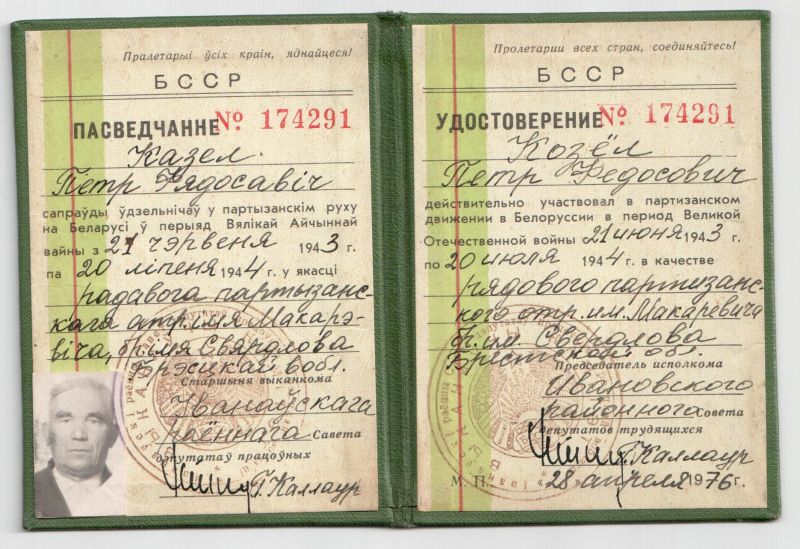 Пралетарыі ўсіх краін, яднайцеся!
БССР
ПАСВЕДЧАННЕ № 174291
Казел
Пётр Фядосавіч
сапраўды ўдзельнічаў у партызанскім руху
на Беларусі ў перыяд Вялікай Айчыннай
вайны з 21 чэрвеня 1943 г.
па 20 ліпеня 1944 г. у якасці
радавога партызанс-
кага атр. імя Макарэ-
віча, бр. імя Свярдлова
Брэсцкай вобл.
Старшыня выканкома
Іванаўскага
раённага Савета
дэпутатаў працоўных
Г. Каллаур
Пролетарии всех стран, соединяйтесь!
БССР
УДОСТОВЕРЕНИЕ № 174291
Козёл
Петр Федосович
действительно участвовал в партизанском
движении в Белоруссии в период Великой
Отечественной войны с 21 июня 1943 г.
по 20 июля 1944 г. в качестве
рядового партизанс-
кого отр. им. Макаревича
бр. им. Свердлова
Брестской обл.
Председатель исполкома
Ивановского
районного Совета
депутатов трудящихся
Г. Каллаур
М. П. 28 апреля 1976 г.